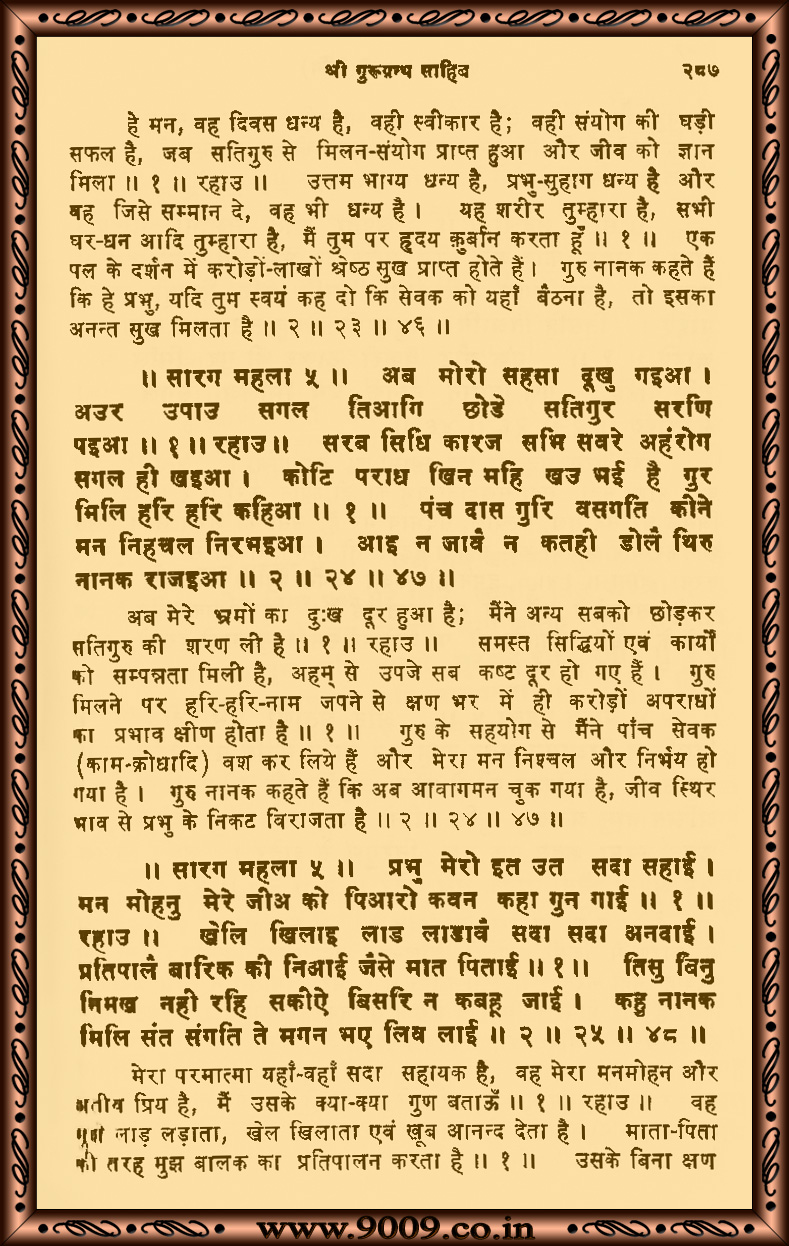 श्री गुरूग्रन्थ साहिब २८७
हे मन, वह दिवस धन्य है, वही स्वीकार है; वही संयोग की घड़ी
सफल है, जब सतिगुरु से मिलन-संयोग प्राप्त हुआ और जीव को ज्ञान
मिला ॥ १ ॥ रहाउ ॥ उत्तम भाग्य धन्य है, प्रभु-सुहाग धन्य है और
वह जिसे सम्मान दे, वह भी धन्य है। यह शरीर तुम्हारा है, सभी
घर-धन आदि तुम्हारा है, मैं तुम पर हृदय क़ुर्बान करता हूँ ॥ १ ॥ एक
पल के दर्शन में करोड़ों-लाखों श्रेष्ठ सुख प्राप्त होते हैं। गुरु नानक कहते हैं
कि हे प्रभु, यदि तुम स्वयं कह दो कि सेवक को यहाँ बैठना है, तो इसका
अनन्त सुख मिलता है ॥ २ ॥ २३ ॥ ४६ ॥
॥ सारग महला ५ ॥ अब मोरो सहसा दूखु गइआ ।
अउर उपाउ सगल तिआगि छोडे सतिगुर सरणि
पइआ ॥ १ ॥ रहाउ ॥ सरब सिधि कारज सभि सवरे अहंरोग
सगल ही खइआ । कोटि पराध खिन महि खउ भई है गुर
मिलि हरि हरि कहिआ ॥ १ ॥ पंच दास गुरि वसगति कीने
मन निहचल निरभइआ । आइ न जावै न कतही डोलै थिरु
नानक राजइआ ॥ २ ॥ २४ ॥ ४७ ॥
अब मेरे भ्रमों का दुःख दूर हुआ है; मैंने अन्य सबको छोड़कर
सतिगुरु की शरण ली है ॥ १ ॥ रहाउ ॥ समस्त सिद्धियों एवं कार्यों
को सम्पन्नता मिली है, अहम् से उपजे सब कष्ट दूर हो गए हैं। गुरु
मिलने पर हरि-हरि-नाम जपने से क्षण भर में ही करोड़ों अपराधों
का प्रभाव क्षीण होता है ॥ १ ॥ गुरु के सहयोग से मैंने पाँच सेवक
(काम-क्रोधादि) वश कर लिये हैं और मेरा मन निश्चल और निर्भय हो
गया है। गुरु नानक कहते हैं कि अब आवागमन चुक गया है, जीव स्थिर
भाव से प्रभु के निकट विराजता है ॥ २ ॥ २४ ॥ ४७ ॥
॥ सारग महला ५ ॥ प्रभु मेरो इत उत सदा सहाई ।
मन मोहनु मेरे जीअ को पिआरो कवन कहा गुन गाई ॥ १ ॥
रहाउ ॥ खेलि खिलाइ लाड लाडावै सदा सदा अनदाई ।
प्रतिपालै बारिक की निआई जैसे मात पिताई ॥ १ ॥ तिसु बिनु
निमख नही रहि सकीऐ बिसरि न कबहू जाई । कहु नानक
मिलि संत संगति ते मगन भए लिव लाई ॥ २ ॥ २५ ॥ ४८ ॥
मेरा परमात्मा यहाँ-वहाँ सदा सहायक है, वह मेरा मनमोहन और
अतीव प्रिय है, मैं उसके क्या-क्या गुण बताऊँ ॥ १ ॥ रहाउ ॥ वह
लाड़ लड़ाता, खेल खिलाता एवं खूब आनन्द देता है। माता-पिता
की तरह मुझ बालक का प्रतिपालन करता है ॥ १ ॥ उसके बिना क्षण
www.9009.co.in